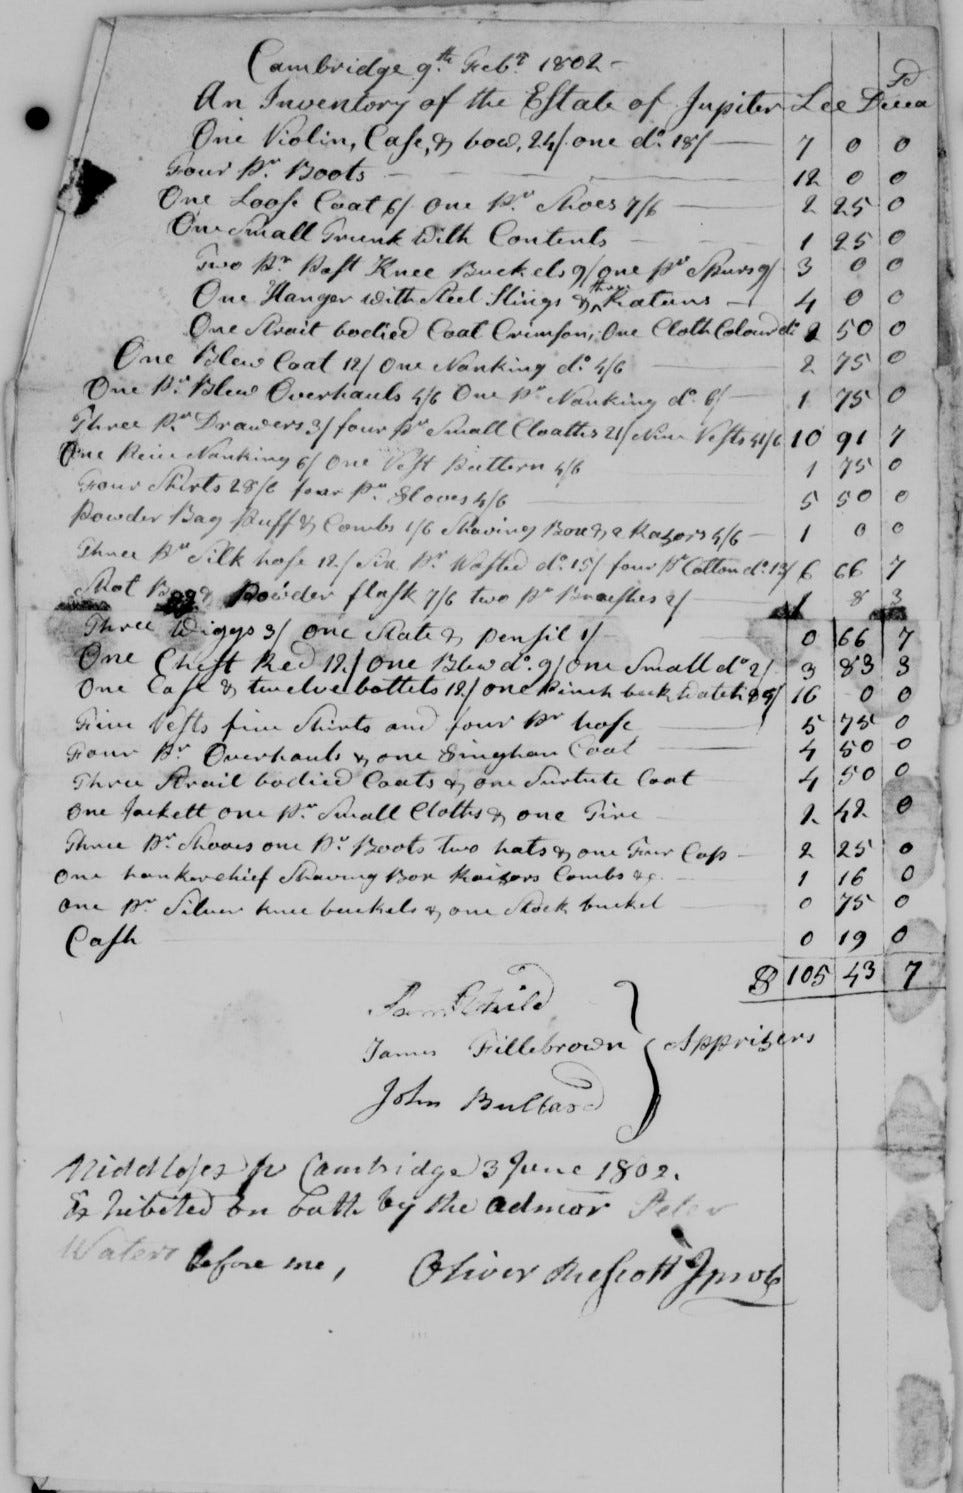 Cambridge 9th Febr 1802 -
An Inventory of the Estate of Jupiter Lee Decead
One Violin, Case, & bow, 24/ one do 18/ 7 0 0
Four Pr Boots 12 0 0
One Loose Coat 6/ One Pr Shoes 7/6 2 25 0
One Small Trunk With Contents 1 25 0
Two Pr Past Knee Buckels 9/ one pr Spurs 9/ 3 0 0
One Hanger with Steel Slings & three 4 0 0
One Strait bodied Coat Crimson, One Cloth Colourd do 2 50 0
One Blew Coat 12/ One Nanking do 4/6 2 75 0
One Pr Blew Overhauls 4/6 One Pr Nanking do 6/ 1 75 0
Three Pr Drawers 3/ four pr Small Cloaths 21/ Nine Vests 41/6 10 91 7
One Peice Nanking 6/ One Vest Pattern 4/6 1 75 0
Four Shirts 28/6 four Pr Gloves 4/6 5 50 0
Powder Bag Puff & Combs 1/6 Shaving Box & 2 Razors 4/6 1 0 0
Three Pr Silk hose 12/ Six Pr Wosted do 15/ four Pr Cotton do 13/ 6 66 7
Shot Bag & Powder flask 7/6 two Pr Brushes 2/ 1 8 3
Three Wiggs 3/ One Slate & pensil 1/ 0 66 7
One Chest Red 12/ One Blew do 9/ One Small do 2/ 3 83 3
One Case & twelve bottels 12/ one Pinch beck Watch 16 0 0
Five Vests five Shirts and four Pr hose 5 75 0
Four Pr Overhauls & one Gingham Coat 4 50 0
Three Strait bodied Coats & one Surtute Coat 4 50 0
One Jackett one Pr Small Cloths & one 2 42 0
Three Pr Shooes one Pr Boots two hats & one Furr Cap 2 25 0
One hankerchief Shaving Box Raizors Combs &c. 1 16 0
One Pr Silver knee buckels & one Stock buckel 0 75 0
Cash 0 19 0
$ 105 43 7
Saml Child
James Fillebrown } Apprizers
John Bullard
Middlesex ss Cambridge 3 June 1802.
Exhibited on oath by the admor Peter
Waters before me, Oliver Prescott Jprob